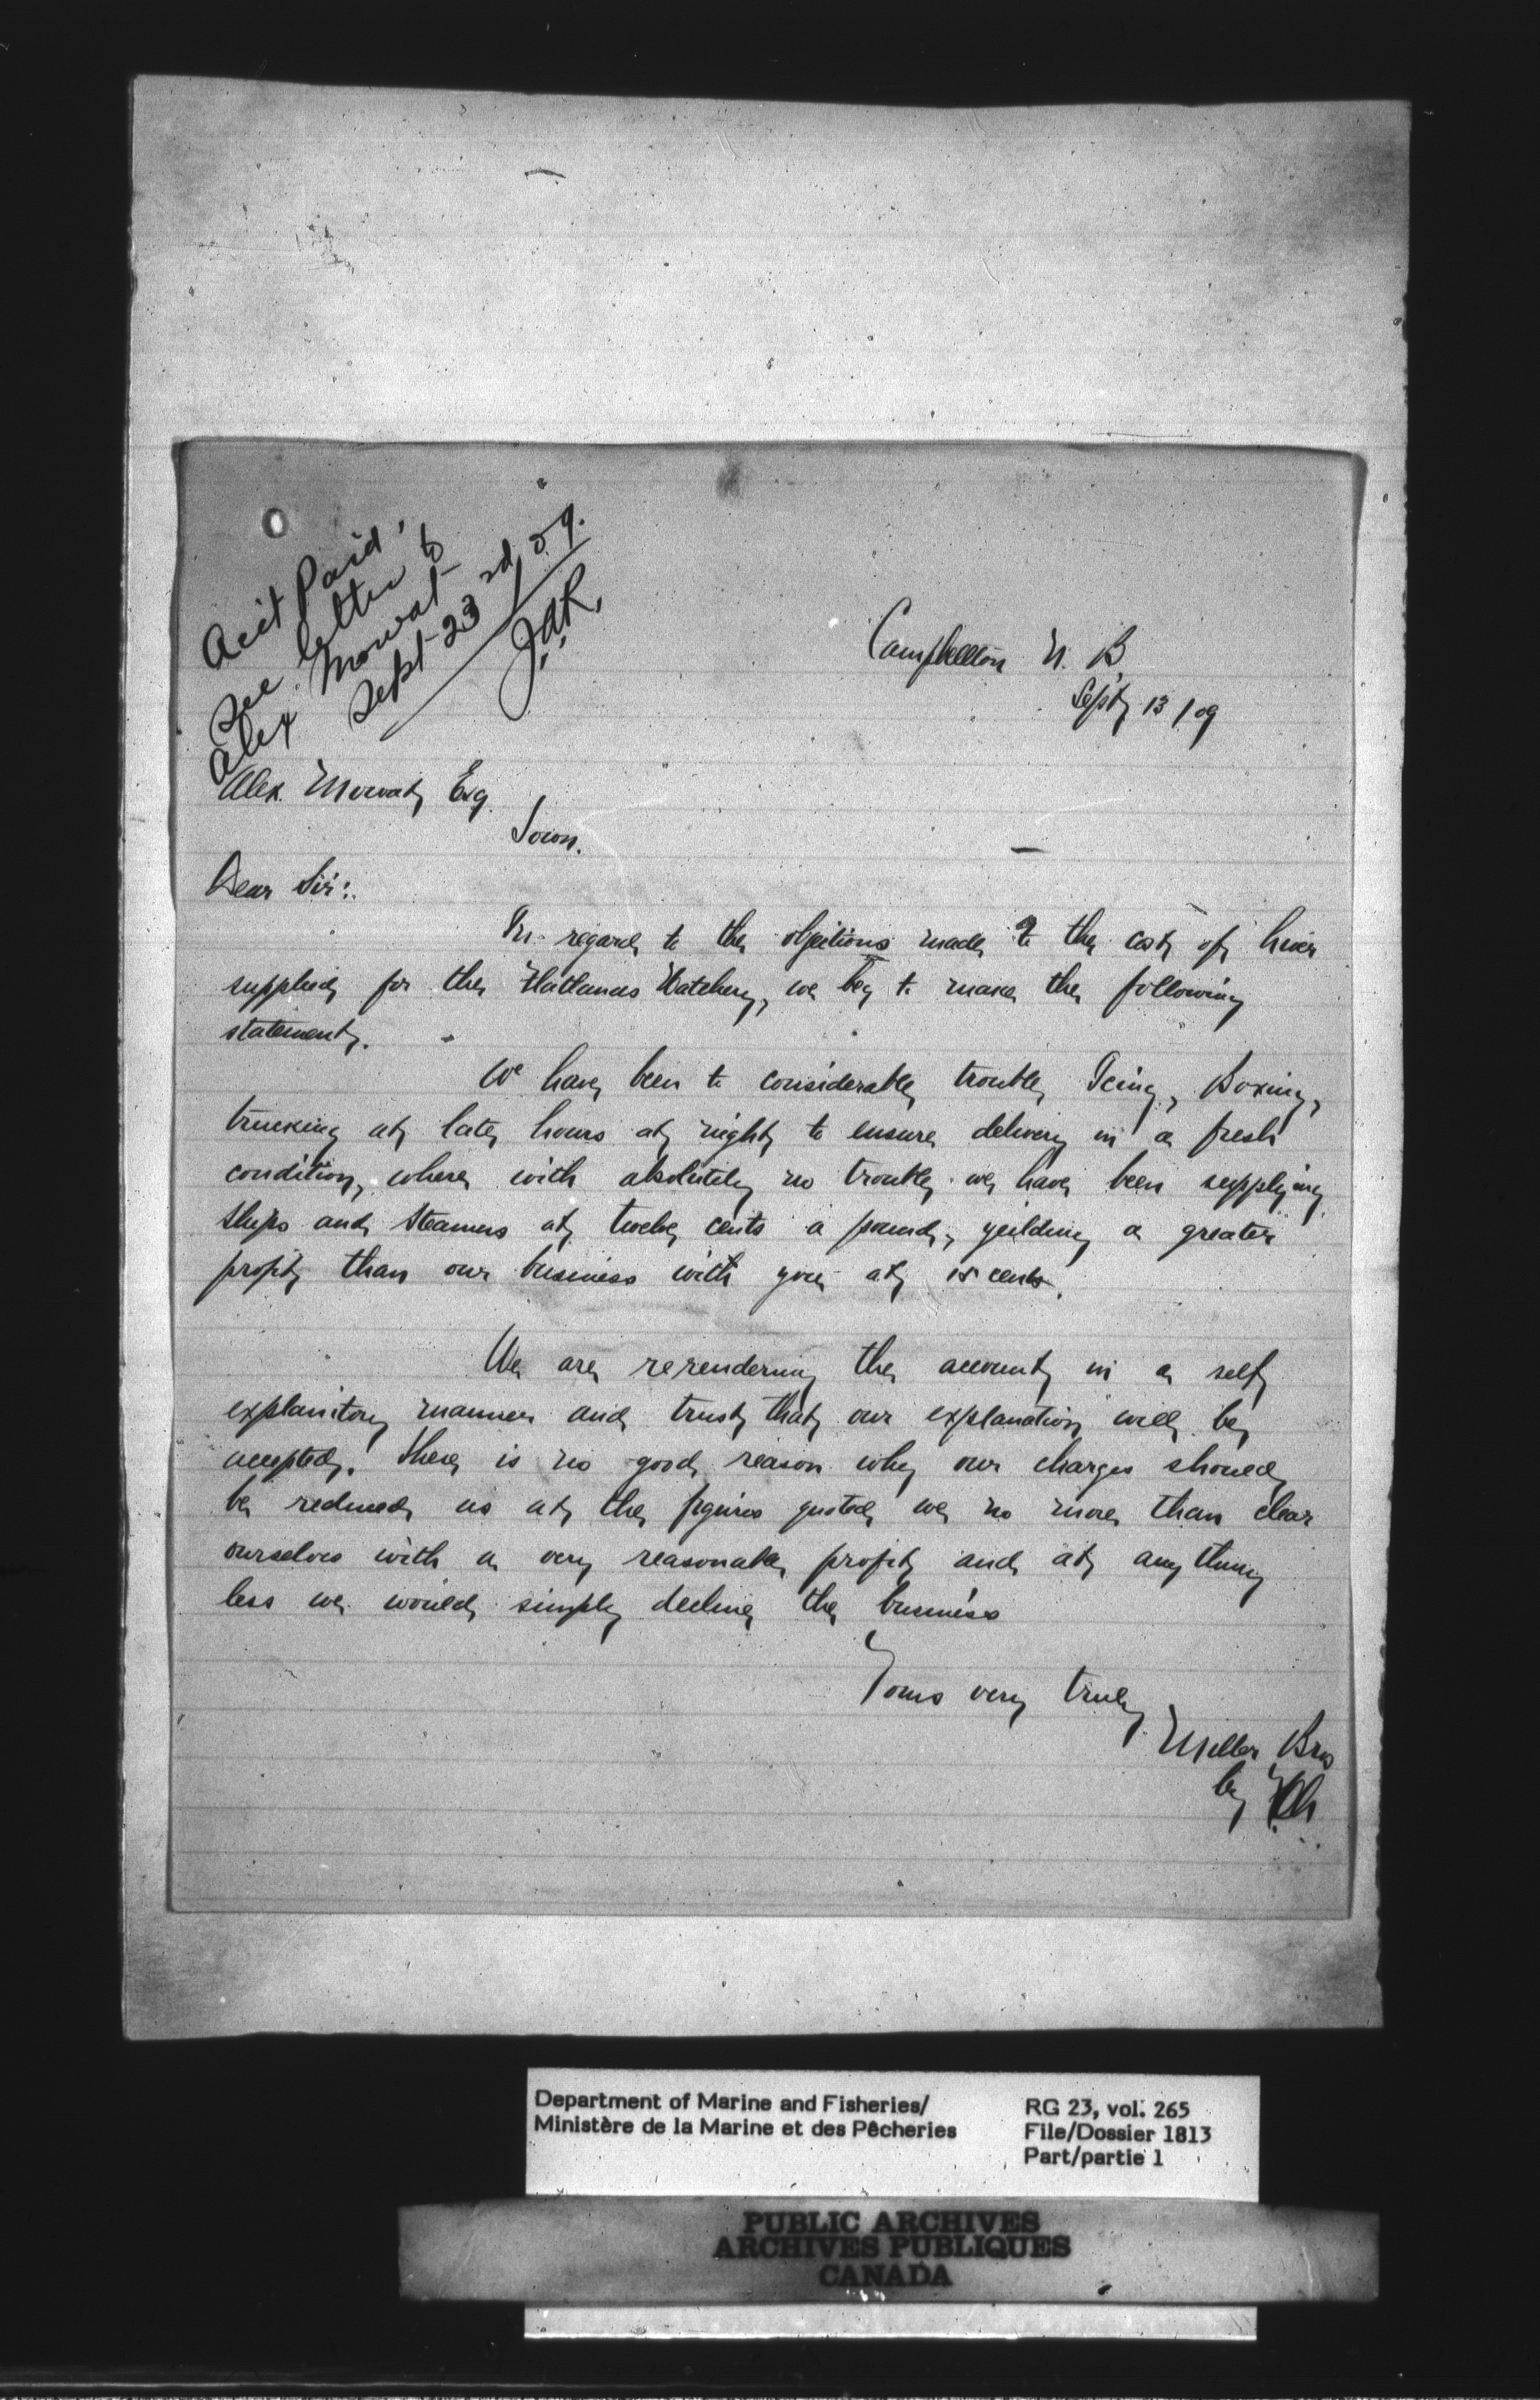 Acct Paid
See letter to
Alex Mowat
Sept 23rd 09.
J.A.R.
Campbellton N. B
Sept 13/09
Alex. Mowat Esq.
Town.
Dear Sir:
In regard to the objections made to the cost of liver
supplied for the Flatlands Hatchery, we beg to make the following
statement.
We have been to considerable trouble Icing, Boxing,
trucking at late hours at night to ensure delivery in a fresh
condition, where with absolutely no trouble we have been supplying
Ships and Steamers at twelve cents a pound, yeilding a greater
profit than our business with you at 15 cents.
We are rerendering the account in a self
explanitory manner and trust that our explanation will be
accepted. There is no good reason why our charges should
be reduced as at the figures quoted we no more than clear
ourselves with a very reasonable profit and at any thing
less we would simply decline the business
Yours very truly
Miller Bros
by
Department of Marine and Fisheries/
Ministère de la Marine et des Pêcheries
RG 23, vol. 265
File/Dossier 1813
Part/partie 1
PUBLIC ARCHIVES
ARCHIVES PUBLIQUES
CANADA